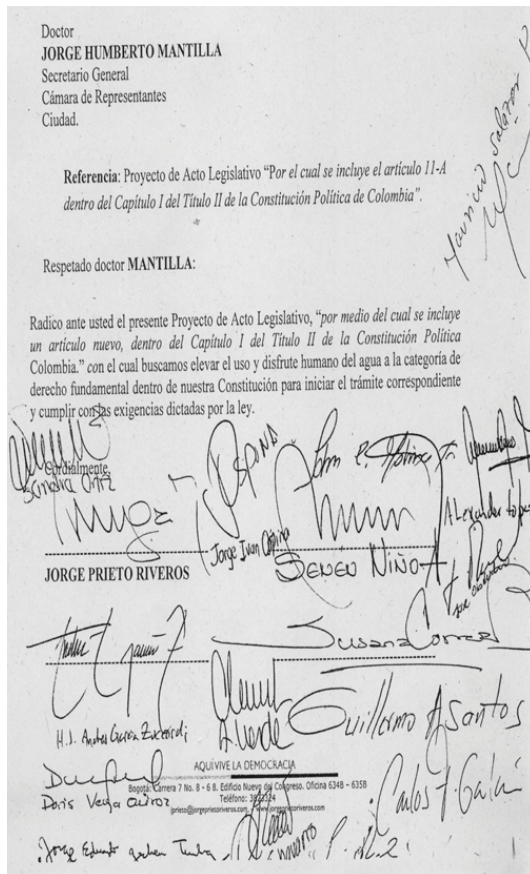 Doctor
JORGE HUMBERTO MANTILLA
Secretario General
Cámara de Representantes
Ciudad.
Mauricio Salazar P
Referencia: Proyecto de Acto Legislativo “Por el cual se incluye el artículo 11-A
dentro del Capítulo I del Título II de la Constitución Política de Colombia”.
Respetado doctor MANTILLA:
Radico ante usted el presente Proyecto de Acto Legislativo, “por medio del cual se incluye
un artículo nuevo, dentro del Capítulo I del Título II de la Constitución Política
Colombia.” con el cual buscamos elevar el uso y disfrute humano del agua a la categoría de
derecho fundamental dentro de nuestra Constitución para iniciar el trámite correspondiente
y cumplir con las exigencias dictadas por la ley.
Cordialmente,
Sandra Ortiz
OSPINA
Jorge Ivan Ospina
Alexander Lopez
JORGE PRIETO RIVEROS
SENÉN NIÑO A
Susana Correa
H.R. Andres García Zuccardi
A. Verde
Guillermo A Santos
AQUÍ VIVE LA DEMOCRACIA
Bogotá: Carrera 7 No. 8 - 6 8. Edificio Nuevo del Congreso. Oficina 634B – 635B
Teléfono: 3823324
jprieto@jorgeprietoriveros.com, www.jorgeprietoriveros.com
Doris Vega Quiroz
Carlos F. Galán
Jorge Eduardo
Navarro